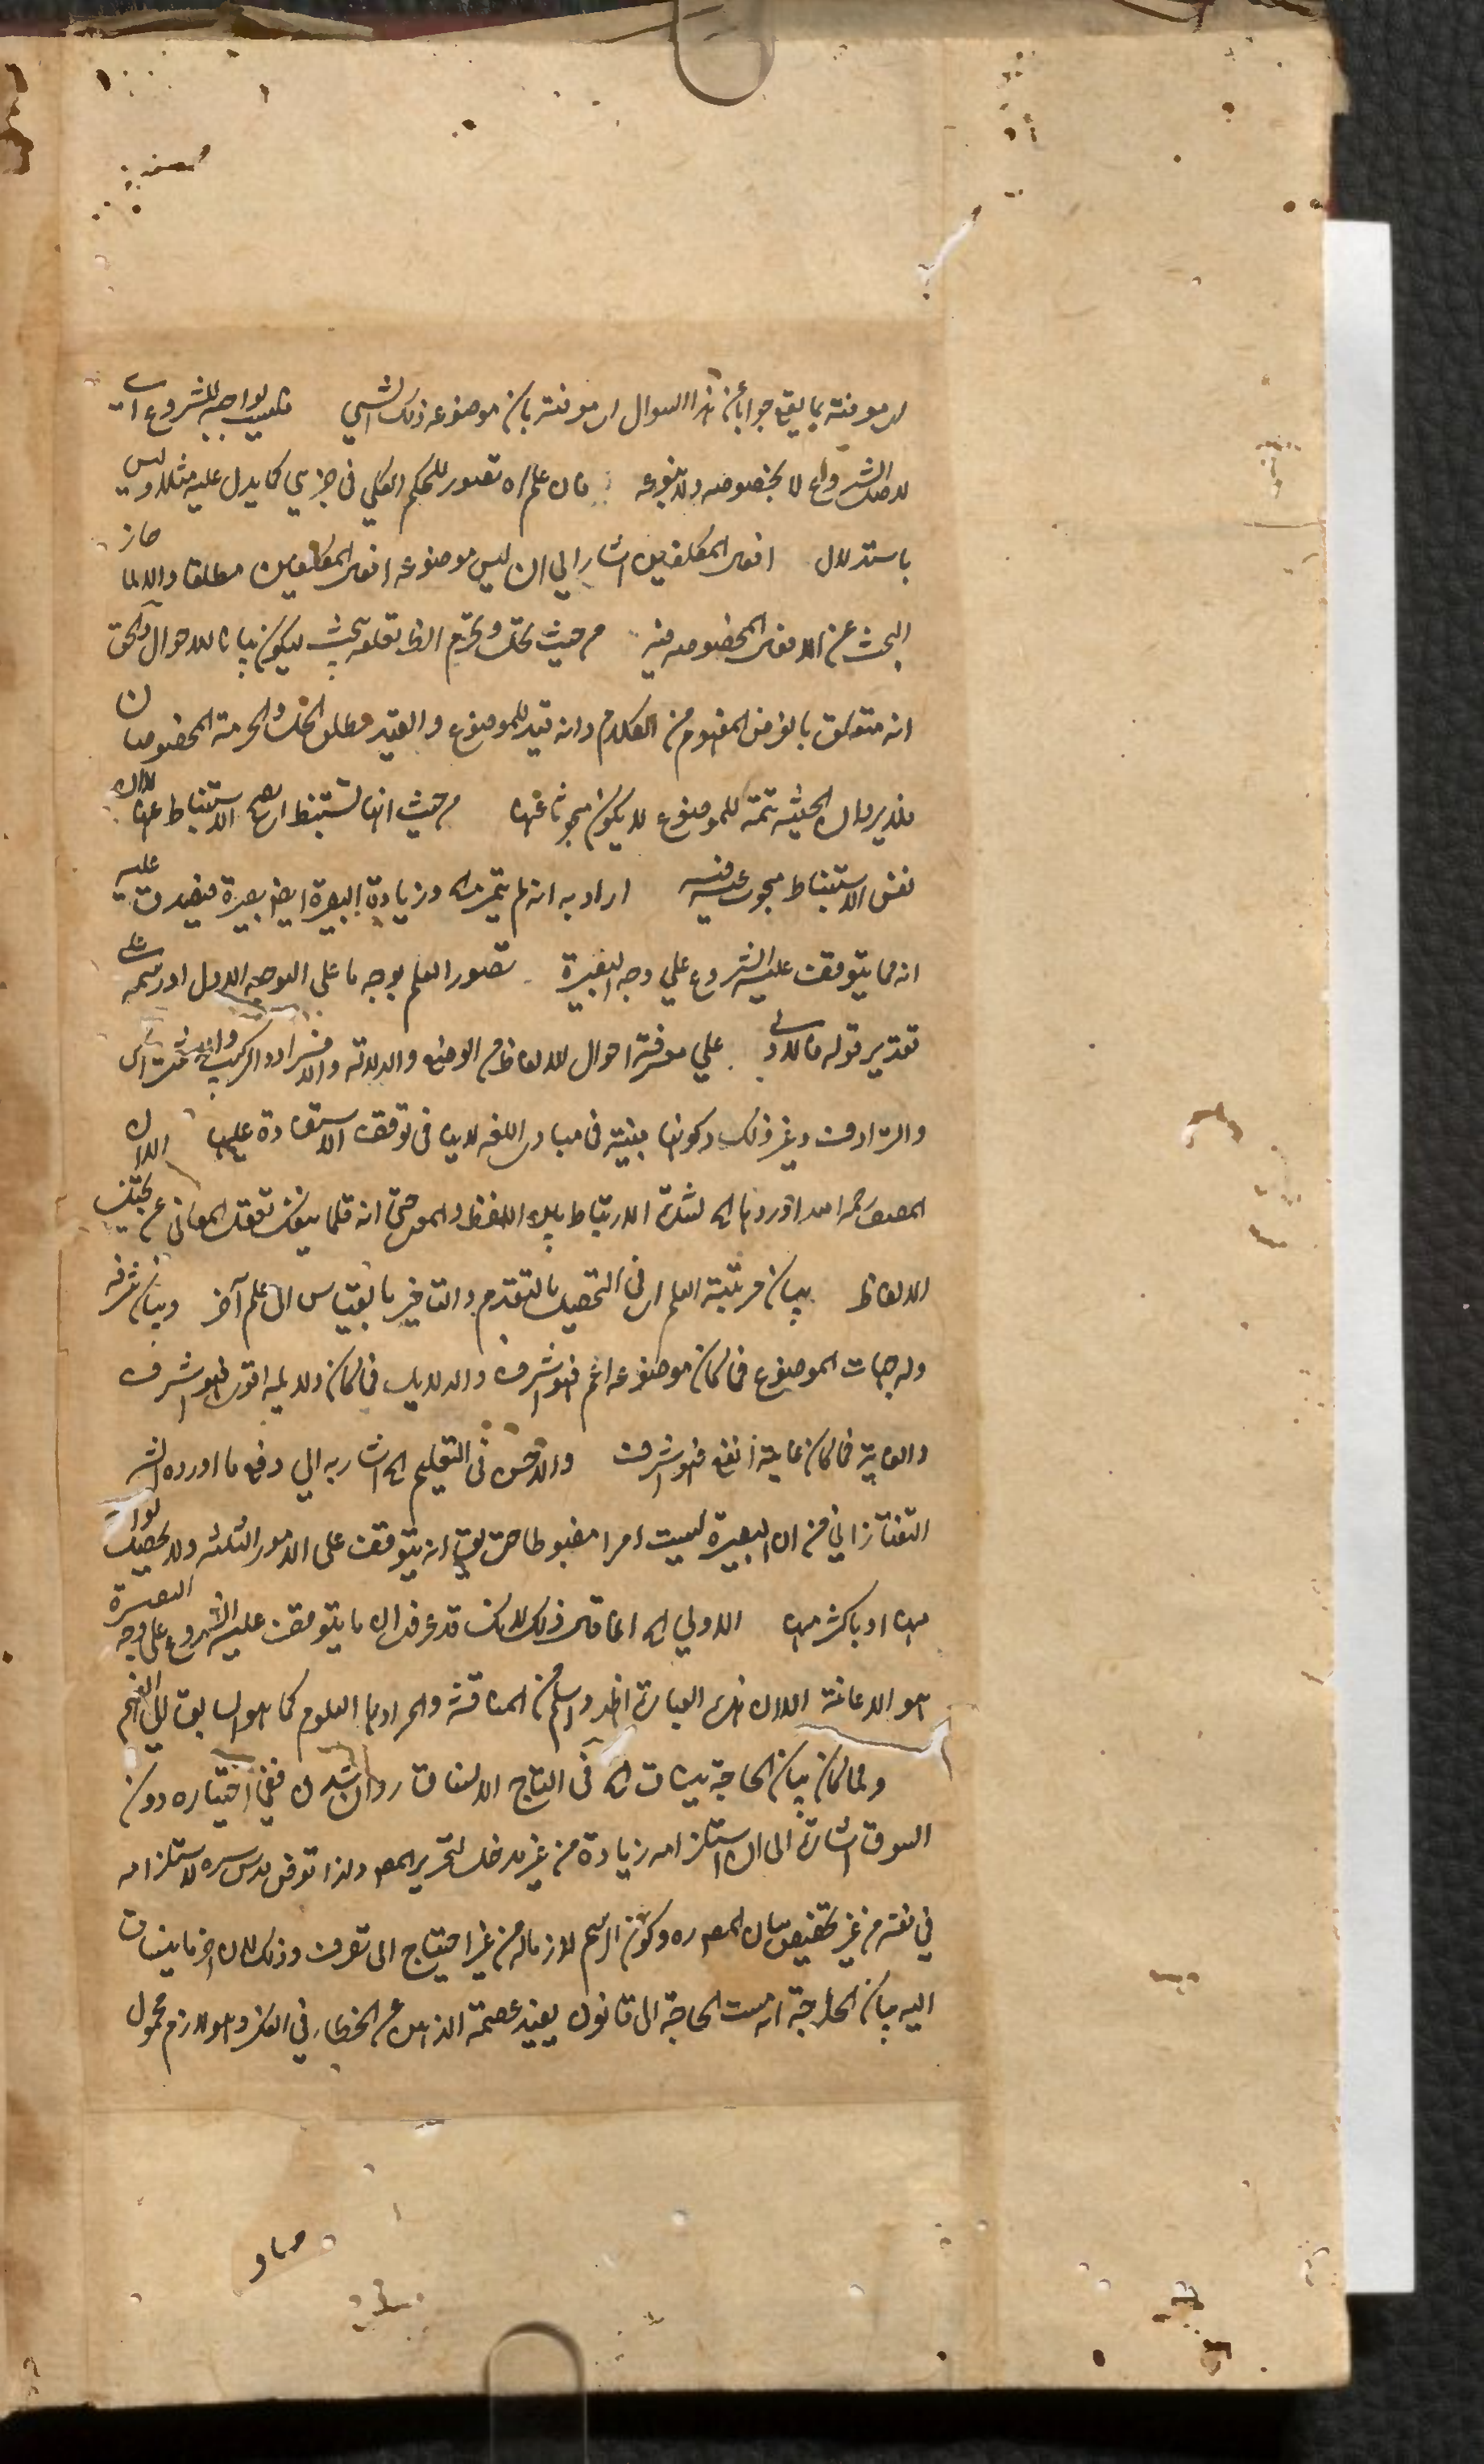 لا معرفته بما يقع جوابا عن هذا السوال اى معرفته بان موضوعه ذلك الشي فليس بواجب للشروع اى
لاصل الشروع لا بخصوصه ولا بنوعه فان علم اه تصور للحكم الكلي فى جزئي كما يدل عليه مثلا وليس
باستدلال افعال المكلفين اشار الي ان ليس موضوعه افعال المكلفين مطلقا والا لما جاز
البحث عن الافعال المخصوصه فيه من حيث تحل وتحرم الظ تعلقه يبحث ليكون بيانا للاحوال والحق
انه متعلق بالعرض المفهوم من الكلام وانه قيد للموضوع والقيد مطلق الحل والحرمة المخصوصان
فلا يرد ان الحيثية تتمة للموضوع لا يكون مبحوثا عنها من حيث انها تستنبط اى يصح الاستنباط عنها لا ان
نفس الاستنباط مبحوث عنه فيه اراد به انه لم يتميز اه وزيادة البصيرة ايضا بصيرة فيصدق عليه
انه مما يتوقف عليه الشروع علي وجه البصيرة تصور العلم بوجه ما على الوجه الاول او رسمه على
تقدير قوله فالاولى علي معرفة احوال الالفاظ من الوضع والدلالة والافراد والتركيب والاشتراك
والترادف وغير ذلك وكونها مبينة فى مبادى اللغه لا ينافى توقف الاستفادة عليها الا ان
المصنف رحمه الله اوردها اه لشدة الارتباط بين اللفظ والمعنى حتى انه قلما ينفك تعقل المعانى عن تخيل
الالفاظ بيان مرتبة العلم اى فى التحصيل بالتقدم والتاخير بالقياس الى علم آخر وبيان شرفه
وله جهات الموضوع فما كان موضوعه اعم فهو اشرف والدلايل فما كان دلايله اقوى فهو اشرف
والغاية فما كان غايته انفع فهو اشرف والاحسن فى التعليم اه اشار به الي دفع ما اورده الش
التفتازاني من ان البصيرة ليست امرا مضبوطا حتى يقال انه يتوقف على الامور الثلثه ولا يحصل بواحد
منها او باكثر منها الاولي اه انما قال ذلك لانك قد عرفت ان ما يتوقف عليه الشروع على وجه البصيرة
هو الاعانة الا ان هذه العبارة اظهر واسلم من المناقشة والمراد بها العلوم كما هو السابق الي الفهم
ولما كان بيان الحاجة ينساق اه فى التاج الانسياق روان شدن ففي اختياره دون
السوق اشارة الى ان استلزامه زيادة من غير مدخل لتحرير المص ولذا تعرض قدس سره لاستلزامه
في نفسه من غير تخصيص ببيان المص ره وكون الرسم لازما له من غير احتياج الى تصرف وذلك لان اخر ما ينساق
اليه بيان الحاجة انه مست الحاجة الى قانون يفيد عصمة الذهن عن الخطاء في الفكر وهو لازم محمول